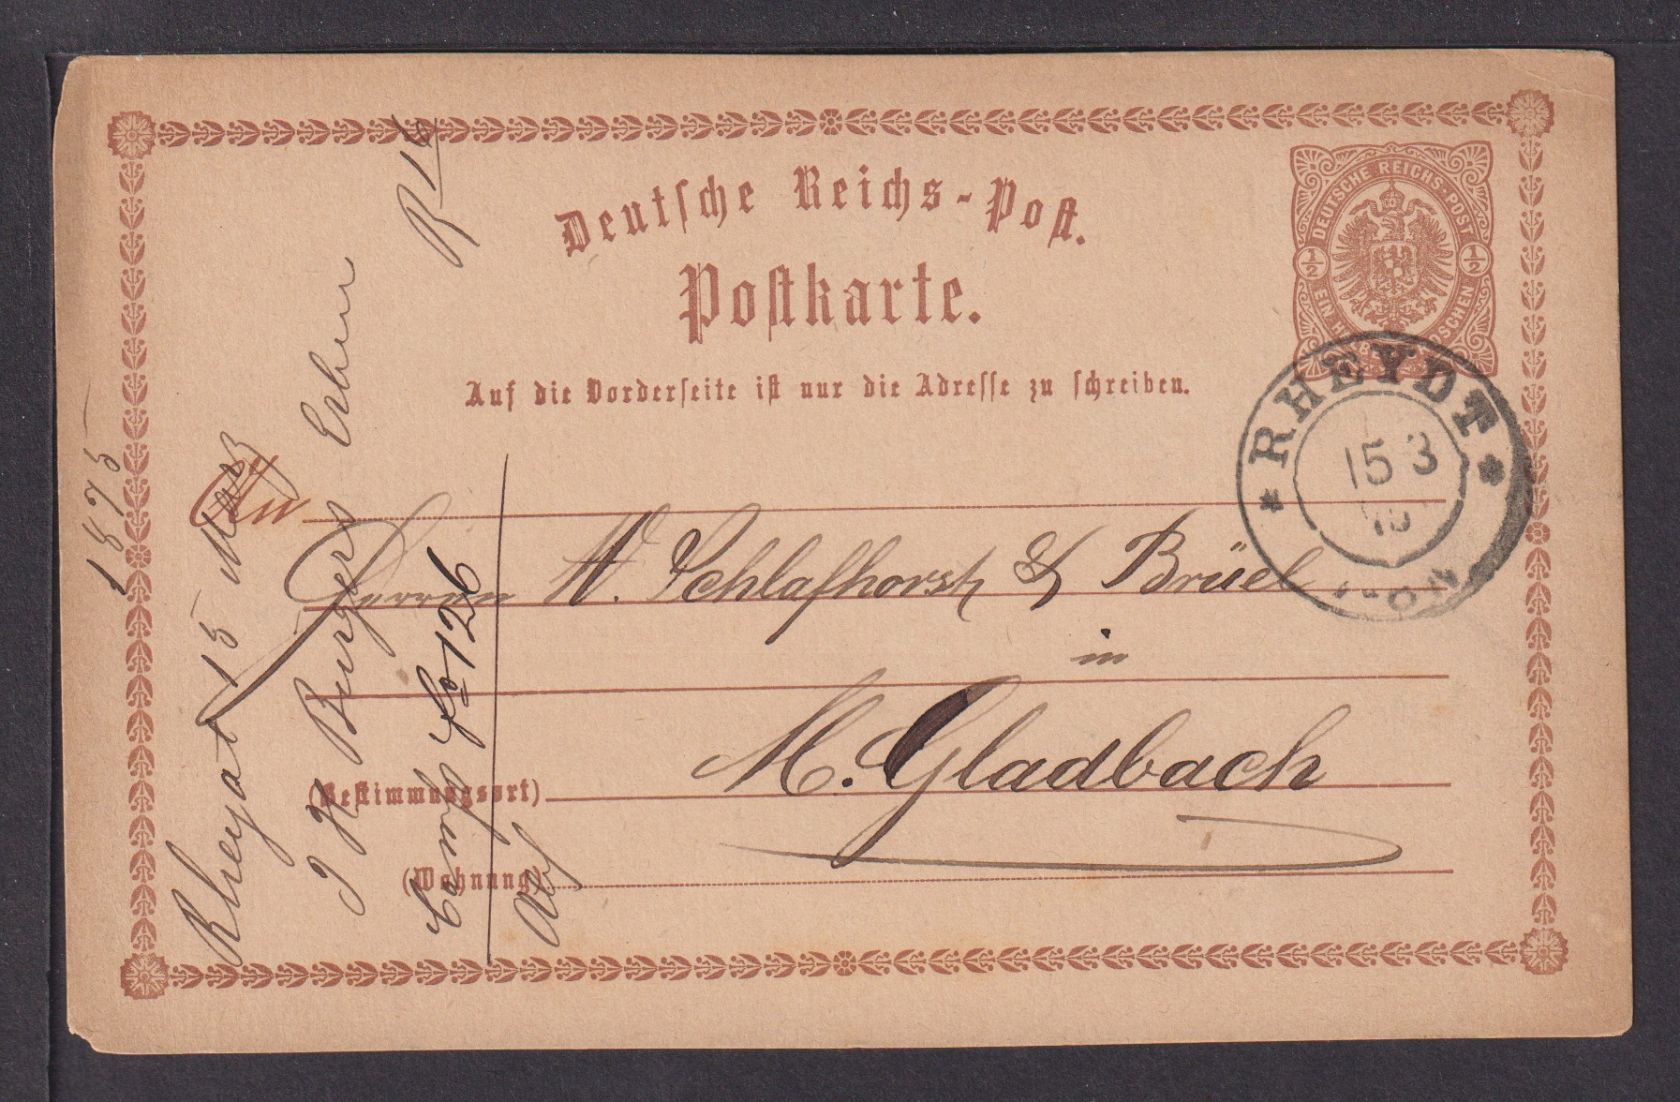 Deutsche Reichs-Post.
Postkarte.
Auf die Vorderseite ist nur die Adresse zu schreiben.
DEUTSCHE REICHS-POST
1/2 1/2
RHEYDT
15 3
An
Herren W. Schlafhorst & Brüel
in
M. Gladbach
(Bestimmungsort)
(Wohnung)
1875
Rheydt 15 März
J H Burgers Erben
fo 126
R 16